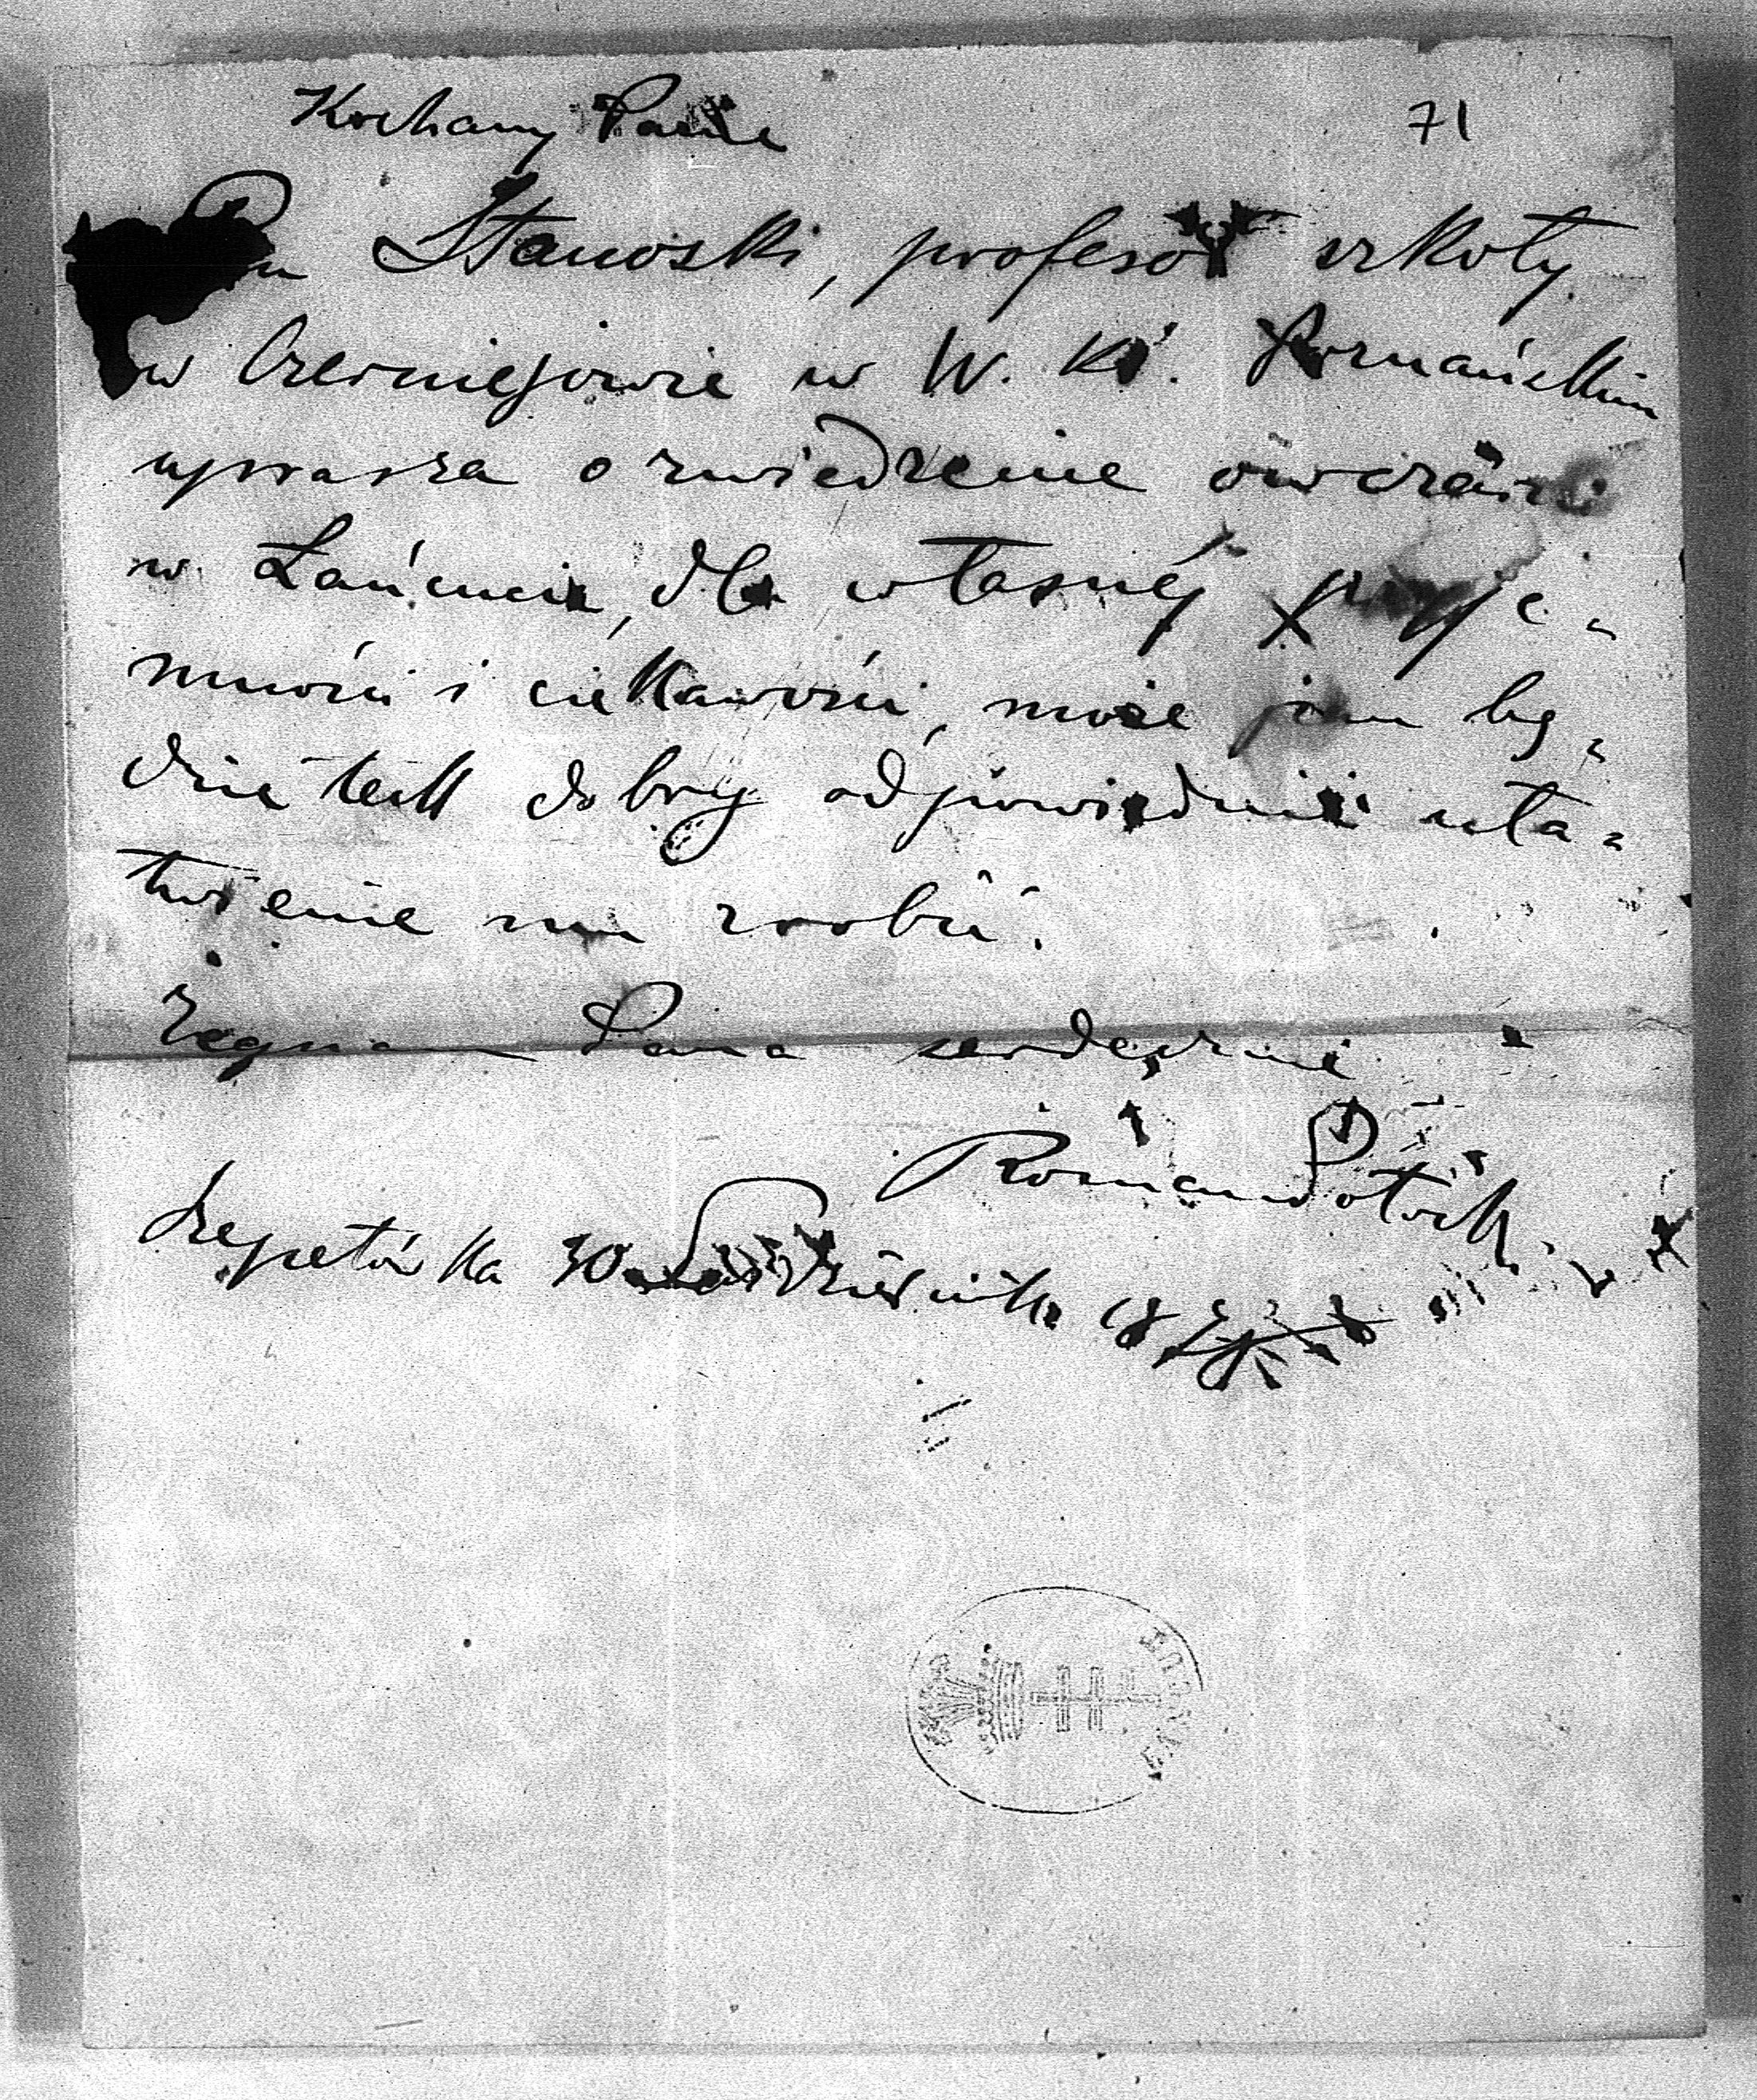 Kochany Panie
71
Pan Stanoski, profesor szkoły
w Czerniejewie w W. Kś. Poznańskim
uprasza o zwiedzenie owczarń
w Łańcucie, dla własnéj przyje-
mności i ciekawości, może pan bę-
dzie tak dobry odpowiednie uła-
twienie mu zrobić.
Żegnam Pana serdecznie
Roman Potocki
Szepetówka 30 Października